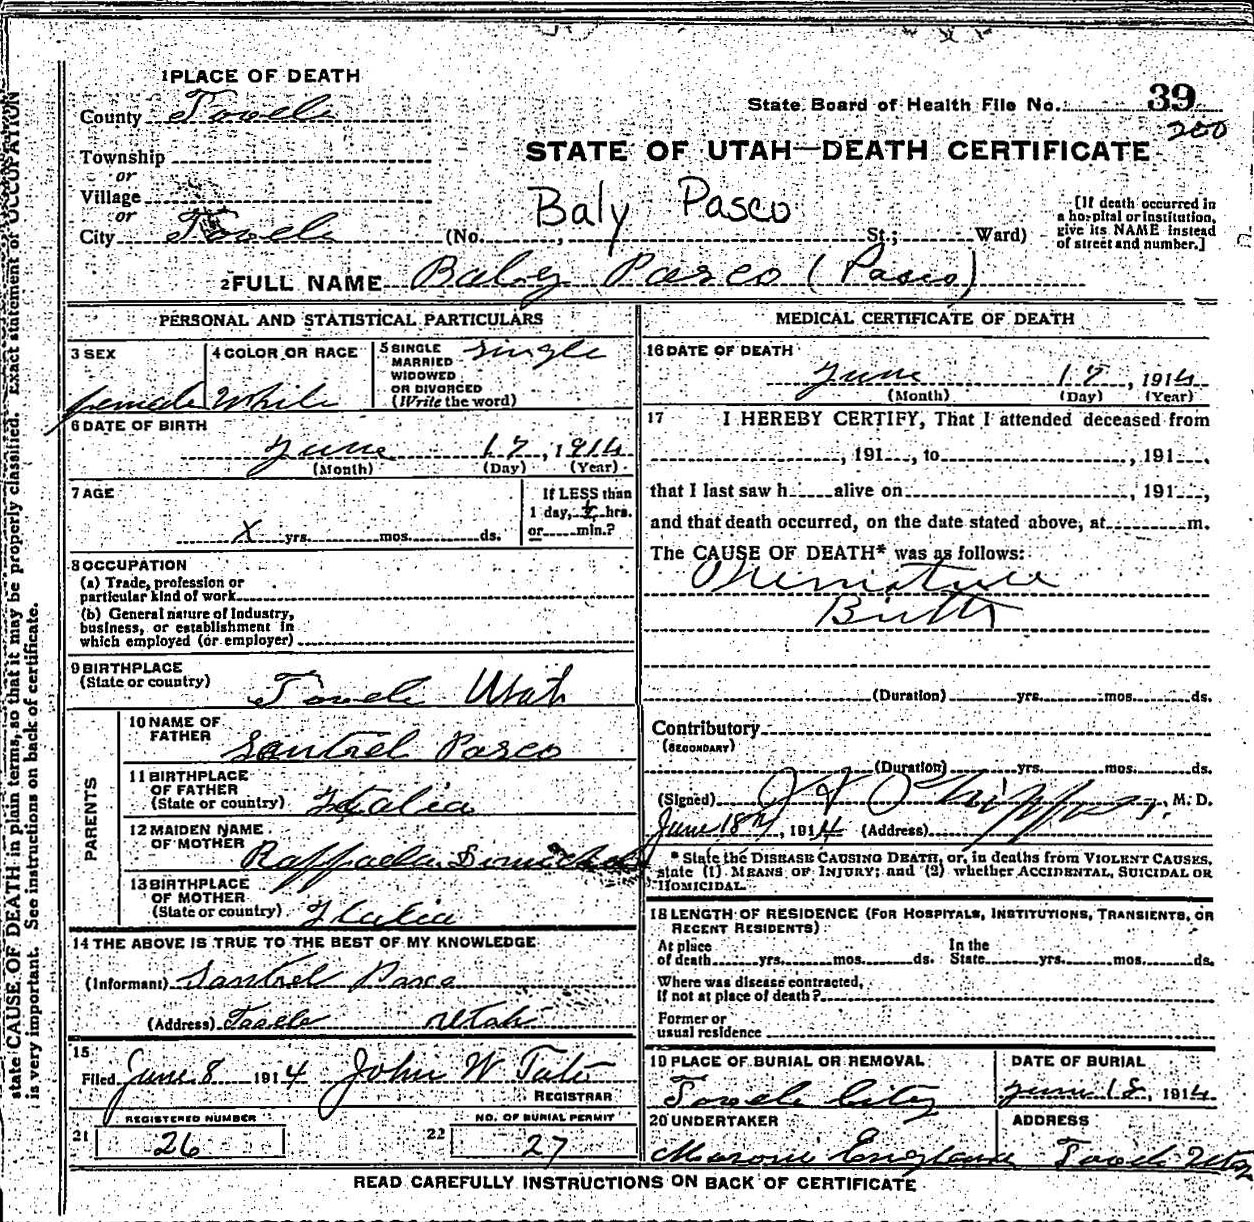 1 PLACE OF DEATH
County Tooele
State Board of Health File No. 39
200
Township
or
Village
or
City Tooele
STATE OF UTAH—DEATH CERTIFICATE
Baly Pasco
(No. , St.; Ward)
[If death occurred in
a hospital or institution,
give its NAME instead
of street and number.]
2 FULL NAME Baby Pasco (Pasco)
PERSONAL AND STATISTICAL PARTICULARS
3 SEX
female
4 COLOR OR RACE
White
5 SINGLE
MARRIED
WIDOWED
OR DIVORCED
(Write the word)
single
6 DATE OF BIRTH
June 17, 1914
(Month) (Day) (Year)
7 AGE
X yrs. mos. ds.
If LESS than
1 day, hrs.
or min.?
8 OCCUPATION
(a) Trade, profession or
particular kind of work
(b) General nature of Industry,
business, or establishment in
which employed (or employer)
9 BIRTHPLACE
(State or country)
Tooele Utah
PARENTS
10 NAME OF
FATHER
Santrel Pasco
11 BIRTHPLACE
OF FATHER
(State or country)
Italia
12 MAIDEN NAME
OF MOTHER
Raffaela
13 BIRTHPLACE
OF MOTHER
(State or country)
Italia
14 THE ABOVE IS TRUE TO THE BEST OF MY KNOWLEDGE
(Informant) Santrel Pasco
(Address) Tooele Utah
15
Filed June 8 1914 John W Tate
REGISTRAR
REGISTERED NUMBER
21 26
NO. OF BURIAL PERMIT
22 27
MEDICAL CERTIFICATE OF DEATH
16 DATE OF DEATH
June 17, 1914
(Month) (Day) (Year)
17 I HEREBY CERTIFY, That I attended deceased from
, 191 , to , 191 ,
that I last saw h alive on , 191 ,
and that death occurred, on the date stated above, at m.
The CAUSE OF DEATH* was as follows:
Premature
Birth
(Duration) yrs. mos. ds.
Contributory
(SECONDARY)
(Duration) yrs. mos. ds.
(Signed) , M. D.
June 18th, 1914 (Address)
* State the DISEASE CAUSING DEATH, or, in deaths from VIOLENT CAUSES,
state (1) MEANS OF INJURY; and (2) whether ACCIDENTAL, SUICIDAL OR
HOMICIDAL.
18 LENGTH OF RESIDENCE (FOR HOSPITALS, INSTITUTIONS, TRANSIENTS, OR
RECENT RESIDENTS)
At place
of death yrs. mos. ds.
In the
State yrs. mos. ds.
Where was disease contracted,
If not at place of death?
Former or
usual residence
19 PLACE OF BURIAL OR REMOVAL
Tooele City
DATE OF BURIAL
June 18, 1914
20 UNDERTAKER
Maroni England
ADDRESS
Tooele Utah
READ CAREFULLY INSTRUCTIONS ON BACK OF CERTIFICATE
state CAUSE OF DEATH in plain terms, so that it may be properly classified. Exact statement of OCCUPATION
is very important. See instructions on back of certificate.